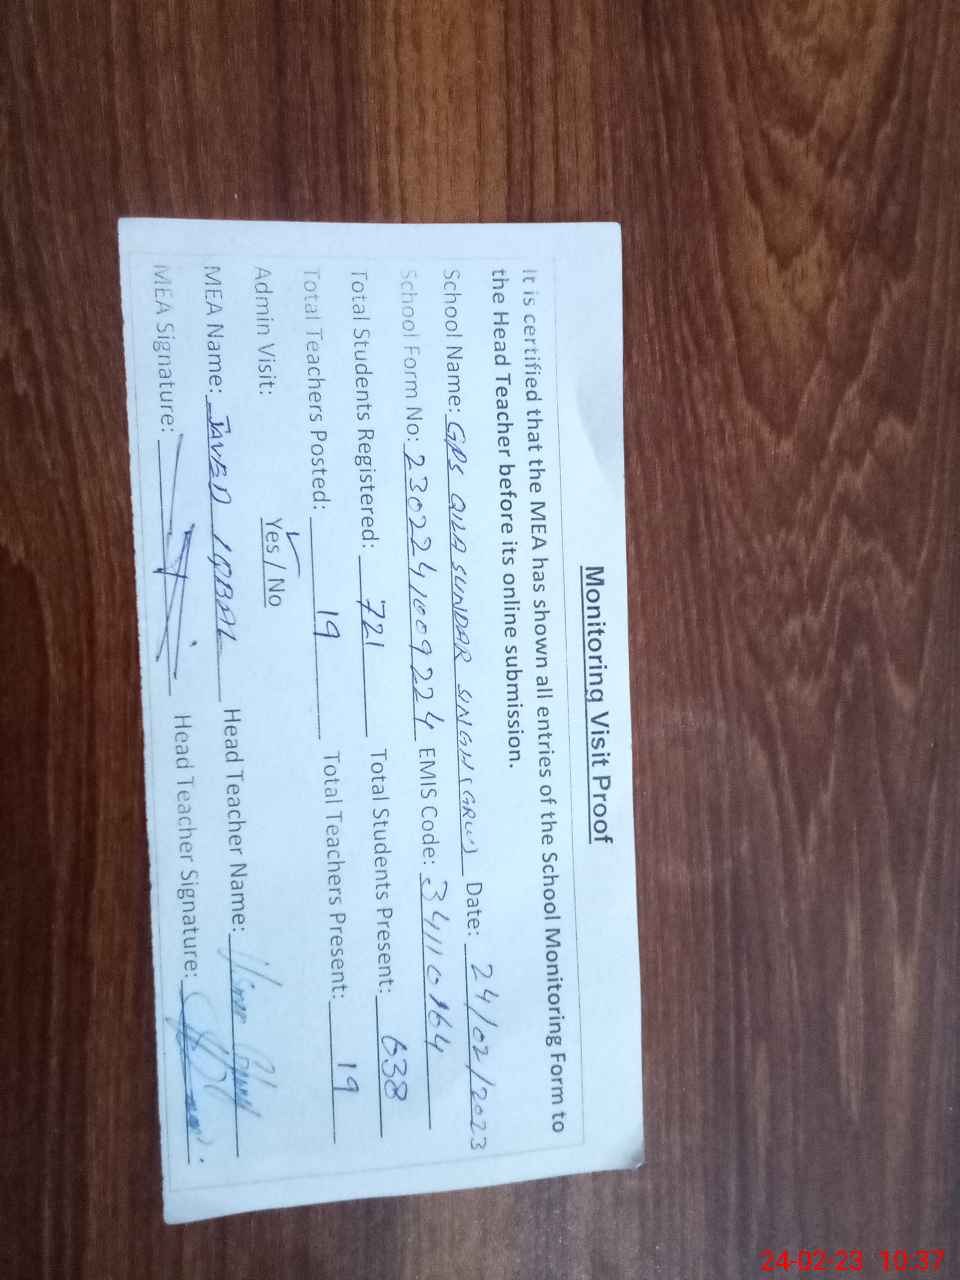 Monitoring Visit Proof
It is certified that the MEA has shown all entries of the School Monitoring Form to
the Head Teacher before its online submission.
School Name: GPS QILA SUNDAR SINGH (GRW) Date: 24/02/2023
School Form No: 2302241009224 EMIS Code: 34110164
Total Students Registered: 721 Total Students Present: 638
Total Teachers Posted: 19 Total Teachers Present: 19
Admin Visit: Yes / No
MEA Name: JAVED IQBAL Head Teacher Name:
MEA Signature: Head Teacher Signature:
24-02-23 10:37